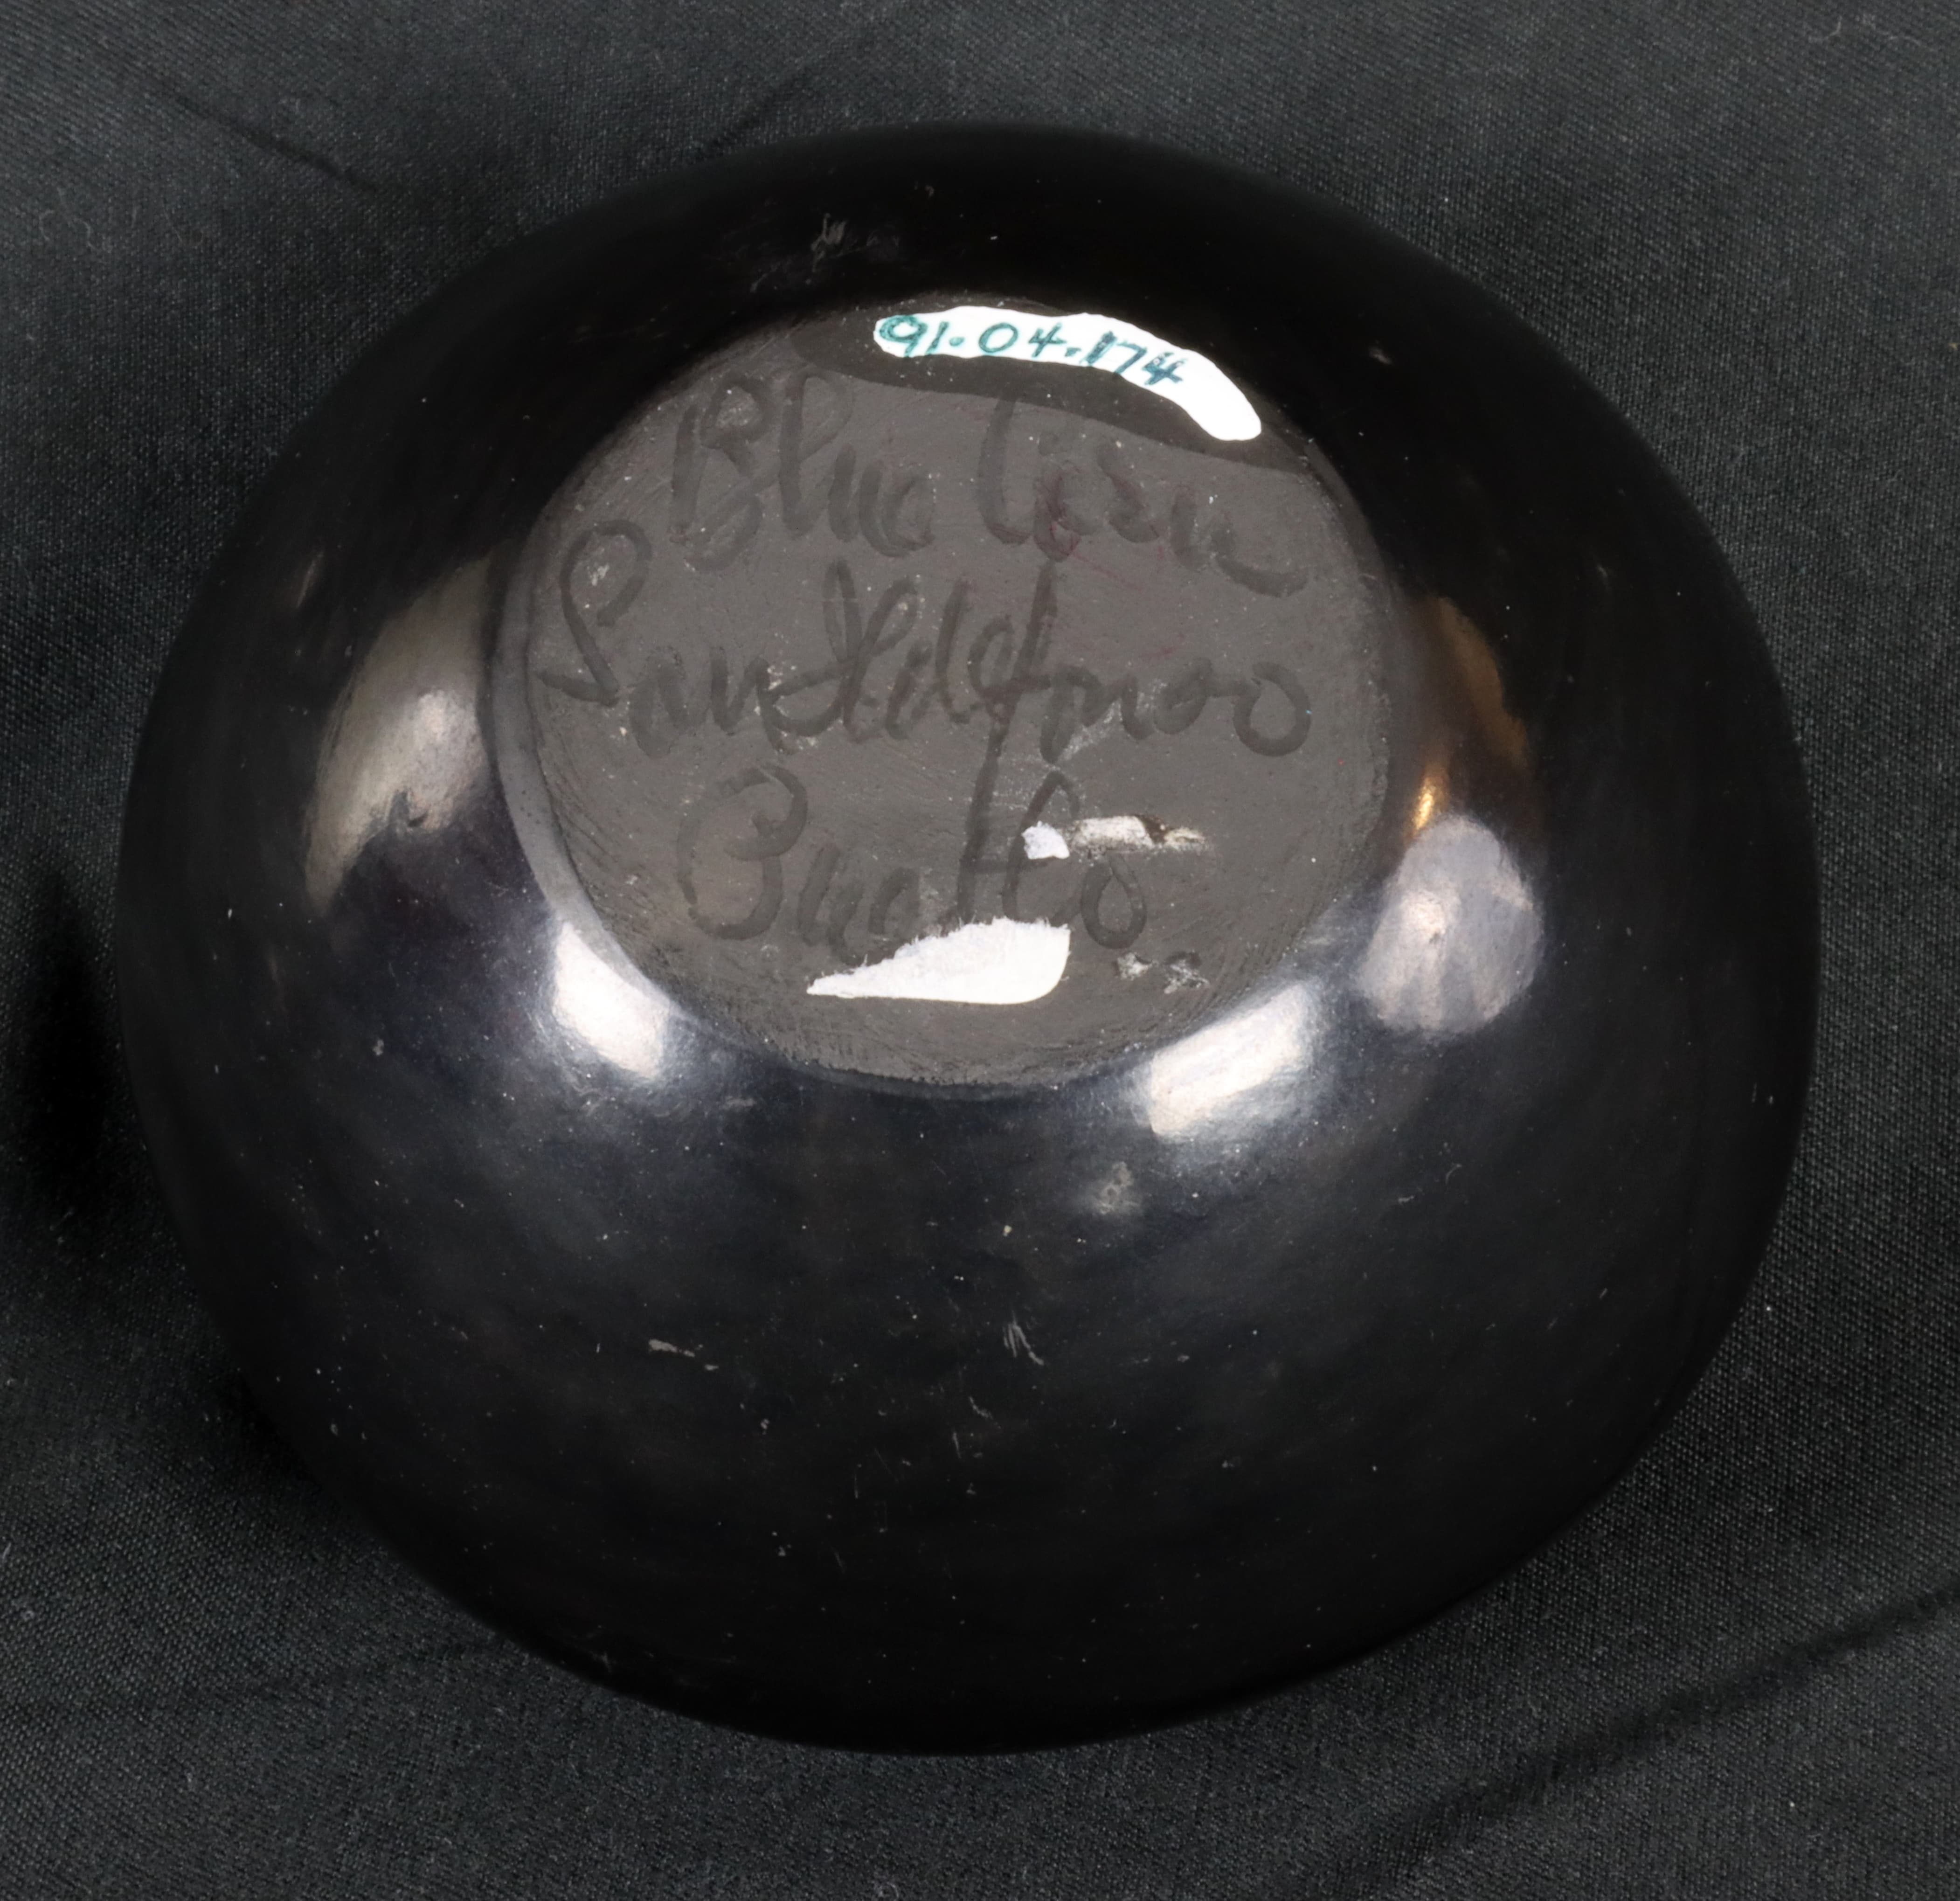 91.04.174
Blue Corn
San Ildefonso
Pueblo